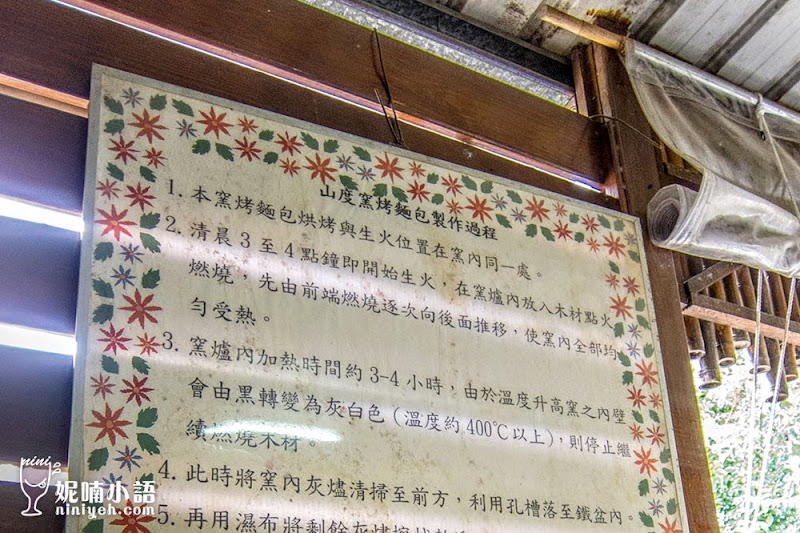 山度窯烤麵包製作過程
1. 本窯烤麵包烘烤與生火位置在窯內同一處。
2. 清晨3至4點鐘即開始生火，在窯爐內放入木材點火
燃燒，先由前端燃燒逐次向後面推移，使窯內全部均
勻受熱。
3. 窯爐內加熱時間約3-4小時，由於溫度升高窯之內壁
會由黑轉變為灰白色(溫度約400℃以上)，則停止繼
續燃燒木材。
4. 此時將窯內灰燼清掃至前方，利用孔槽落至鐵盆內。
5. 再用濕布將剩餘灰燼
nini
妮喃小語
niniyeh.com